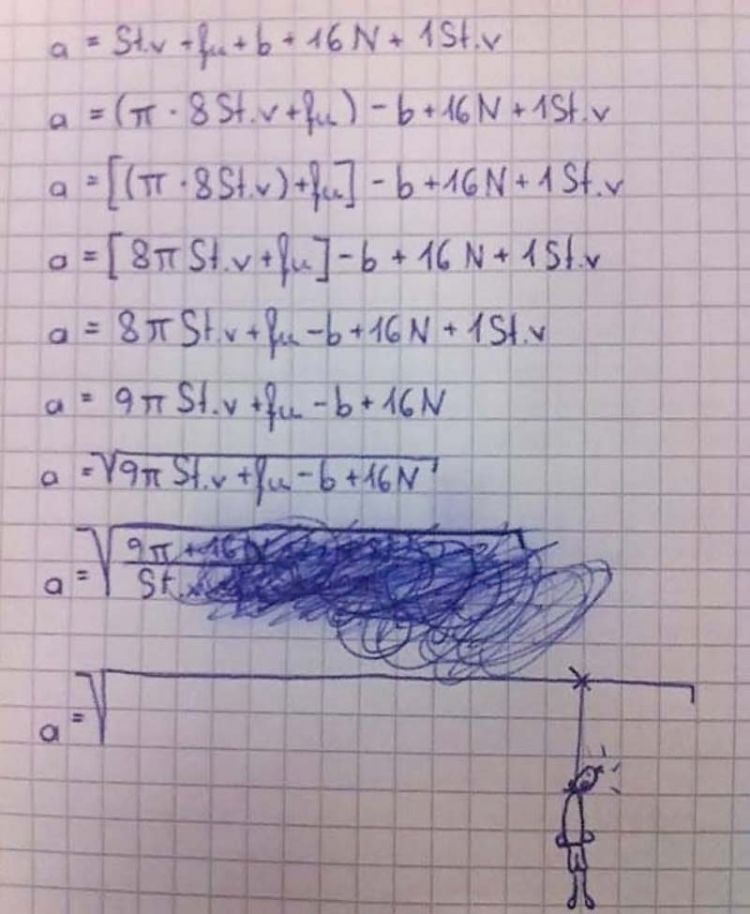 a = St.v + fu + b + 16 N + 1 St.v
a = (π · 8 St.v + fu) - b + 16 N + 1 St.v
a = [(π · 8 St.v) + fu] - b + 16 N + 1 St.v
a = [8π St.v + fu] - b + 16 N + 1 St.v
a = 8π St.v + fu - b + 16 N + 1 St.v
a = 9π St.v + fu - b + 16 N
a = √9π St.v + fu - b + 16 N
a = √ 9π + 16 N
St.
a = √